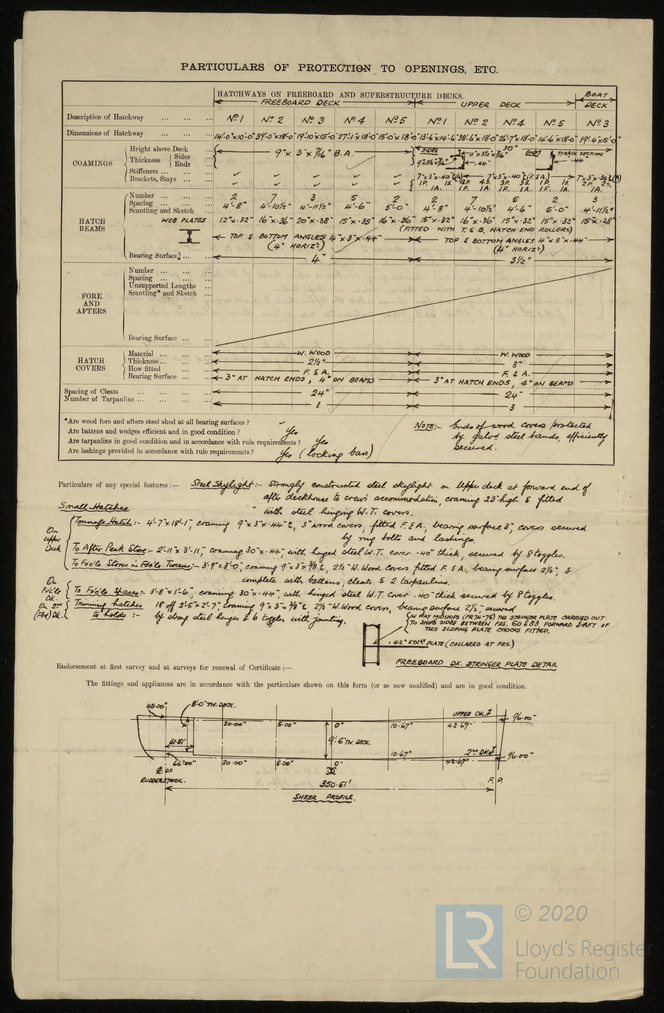 PARTICULARS OF PROTECTION TO OPENINGS, ETC.
HATCHWAYS ON FREEBOARD AND SUPERSTRUCTURE DECKS.
FREEBOARD DECK UPPER DECK BOAT DECK
Description of Hatchway ... ... ... Nº 1 Nº 2 Nº 3 Nº 4 Nº 5 Nº 1 Nº 2 Nº 4 Nº 5 Nº 3
Dimensions of Hatchway ... ... ...
COAMINGS
Height above Deck
Thickness { Sides ... Ends ...
9" x 3" x 7/16" B.A.
SIDES ENDS
Stiffeners ... ... ...
Brackets, Stays ... ...
HATCH BEAMS
Number ... ... ... 2 7 3 5 2 2 7 6 2 3
Spacing ... ... ... 4'-8" 4'-10½" 4'-11½" 4'-6" 5'-0" 4'-8" 4'-10½" 4'-6" 5'-0" 4'-11½"
Scantling and Sketch
WEB PLATES 12"x·32" 16"x·36" 20"x·38" 15"x·35" 16"x·36" 15"x·32" 16"x·36" 15"x·32" 15"x·32" 15"x·28"
(FITTED WITH T. & B. HATCH END ROLLERS)
TOP & BOTTOM ANGLES 4"x3"x·44" TOP & BOTTOM ANGLES 4"x3"x·44"
(4" HORIZL) (4" HORIZL)
Bearing Surface* ... ... 4" 3½"
FORE AND AFTERS
Number ... ... ...
Spacing ... ... ...
Unsupported Lengths
Scantling* and Sketch ...
Bearing Surface ... ...
HATCH COVERS
Material ... ... ... W. WOOD W. WOOD
Thickness ... ... ... 2½" 3"
How fitted ... ... F. & A. F. & A.
Bearing Surface ... ... 3" AT HATCH ENDS, 4" ON BEAMS 3" AT HATCH ENDS, 4" ON BEAMS
Spacing of Cleats ... ... ... 24" 24"
Number of Tarpaulins ... ... ... 1 3
*Are wood fore and afters steel shod at all bearing surfaces?
Are battens and wedges efficient and in good condition? Yes
Are tarpaulins in good condition and in accordance with rule requirements? Yes
Are lashings provided in accordance with rule requirements? Yes (locking bars)
NOTE:- Ends of wood covers protected
by galvd steel bands, efficiently
secured.
Particulars of any special features:— Steel Skylight:- Strongly constructed steel skylight on Upper deck at forward end of
after deckhouse to crew's accommodation, coaming 23" high & fitted
with steel hinging W.T. covers.
Small Hatches
On Upper Deck
Tonnage Hatch:- 4'-7"x18'-1", coaming 9"x3"x·44"L, 3" wood covers, fitted F.&A., bearing surface 3", covers secured
by ring bolts and lashings.
To After Peak Store:- 2'-11"x3'-11", coaming 30"x·44", with hinged steel W.T. cover ·40" thick, secured by 8 toggles.
To Foc'le Stores in Foc'le Tweens:- 3'-9"x3'-0", coaming 9"x3"x3/8"L, 2½" W.Wood covers fitted F.&A., bearing surface 2½", &
complete with battens, cleats & 2 tarpaulins.
On Foc'le Dk.
To Foc'le Spaces:- 3'-8"x1'-6", coaming 30"x·44", with hinged steel W.T. cover ·40" thick secured by 8 toggles.
Trimming hatches to holds:- 18 off 2'-5"x2'-7", coaming 9"x3"x3/8"L 2½" W.Wood covers, bearing surface 2½", secured
by strong steel hinges & 6 toggles with jointing.
IN WAY HOLD STPS (FR 74-75) THE STRINGER PLATE CARRIED OUT
TO SHIPS SIDES BETWEEN FRS. 60 & 83 FORWARD & AFT OF
THIS SLOPING PLATE CHOCKS FITTED.
·42" STRGR PLATE (COLLARED AT FRS.)
FREEBOARD DK. STRINGER PLATE DETAIL
Endorsement at first survey and at surveys for renewal of Certificate:—
The fittings and appliances are in accordance with the particulars shown on this form (or as now modified) and are in good condition.
45·00" 8'-0" TW. DECK. UPPER DK. 96·00"
20·00" 5·00" 0" 10·67" 42·67"
31·51' 9'-6" TW. DECK
10·67" 2ND DK. 96·00"
66·00" 20·00" 5·00" 0" 42·67"
RUDDERSTOCK. 350·61' F.P.
SHEER PROFILE.
LR © 2020
Lloyd's Register
Foundation